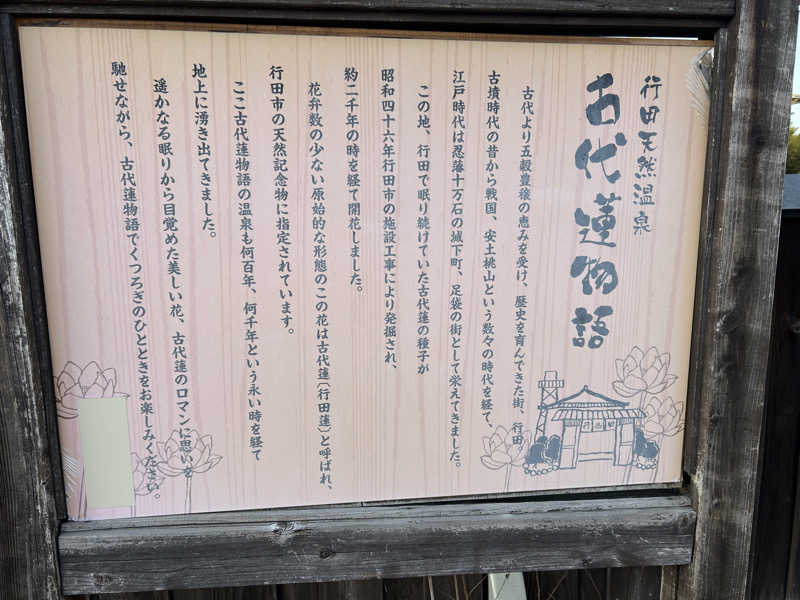 行田天然温泉
古代蓮物語
古代より五穀豊穣の恵みを受け、歴史を育んできた街、行田
古墳時代の昔から戦国、安土桃山という数々の時代を経て、
江戸時代は忍藩十万石の城下町、足袋の街として栄えてきました。
この地、行田で眠り続けていた古代蓮の種子が
昭和四十六年行田市の施設工事により発掘され、
約二千年の時を経て開花しました。
花弁数の少ない原始的な形態のこの花は古代蓮（行田蓮）と呼ばれ、
行田市の天然記念物に指定されています。
ここ古代蓮物語の温泉も何百年、何千年という永い時を経て
地上に湧き出てきました。
遥かなる眠りから目覚めた美しい花、古代蓮のロマンに思いを
馳せながら、古代蓮物語でくつろぎのひとときをお楽しみください。